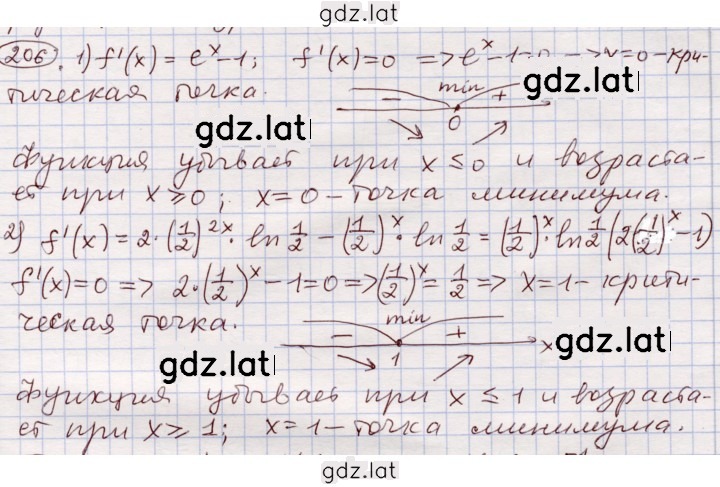 gdz.lat
206. 1) f'(x) = e^x - 1; f'(x) = 0 => e^x - 1 = 0 => x = 0 - кри-
тическая точка.
min
- +
0
gdz.lat
Функция убывает при x ≤ 0 и возраста-
ет при x ≥ 0; x = 0 - точка минимума.
2) f'(x) = 2·(1/2)^2x · ln 1/2 - (1/2)^x · ln 1/2 = (1/2)^x · ln 1/2 (2(1/2)^x - 1)
f'(x) = 0 => 2·(1/2)^x - 1 = 0 => (1/2)^x = 1/2 => x = 1 - крити-
ческая точка.
min
- +
1 x
gdz.lat
gdz.lat
Функция убывает при x ≤ 1 и возраста-
ет при x ≥ 1; x = 1 - точка минимума.
gdz.lat